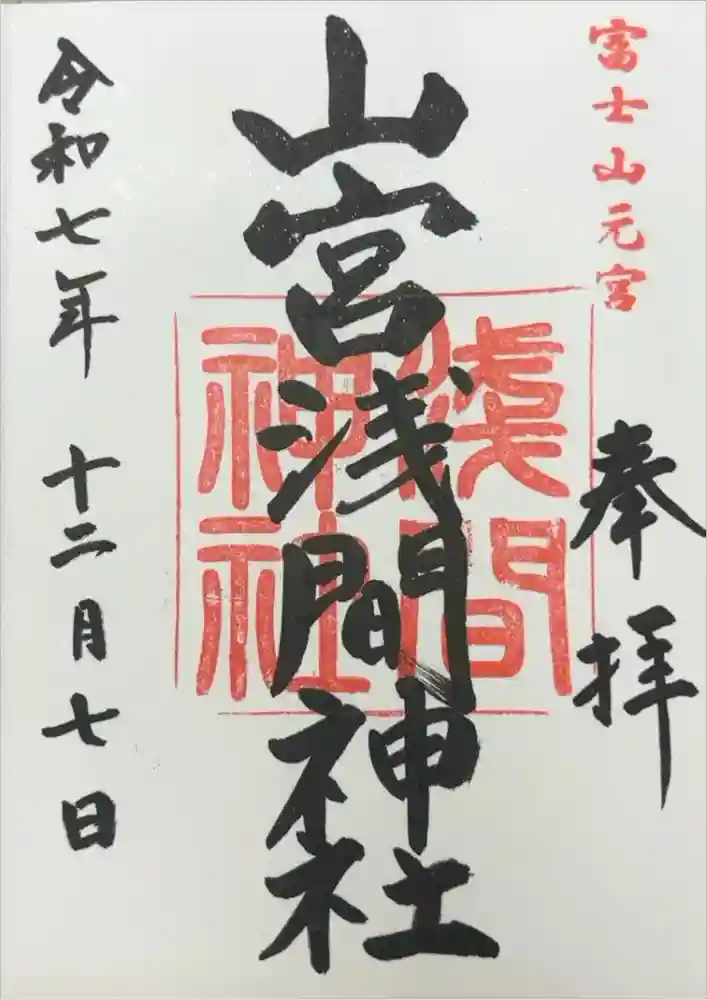 富士山元宮
奉拝
山宮浅間神社
浅間
神社
令和七年 十二月七日